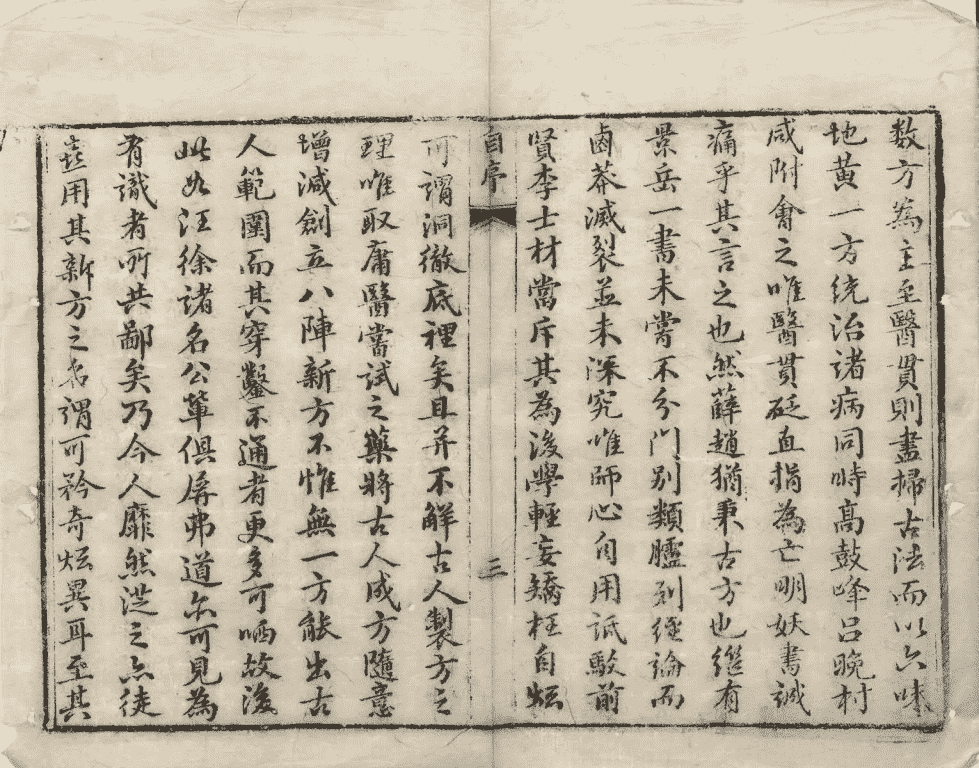 数方為主至醫貫則盡掃古法而以六味
地黄一方統治諸病同時高鼓峰吕晚村
咸附會之唯醫貫砭直指為亡明妖書誠
痛乎其言之也然薛趙猶秉古方也繼有
景岳一書未嘗不分門别類臚列經論而
鹵莽滅裂並未深究唯師心自用詆駁前
賢李士材當斥其為後學輕妄矯枉自炫
自序
三
可謂洞徹底裡矣且并不解古人製方之
理唯取庸醫嘗試之藥將古人成方隨意
增減創立八陣新方不惟無一方能出古
人範圍而其穿鑿不通者更多可哂故後
此如汪徐諸名公輩俱屏弗道亦可見為
有識者所共鄙矣乃今人靡然從之亦徒
喜用其新方之名謂可矜奇炫異耳至其